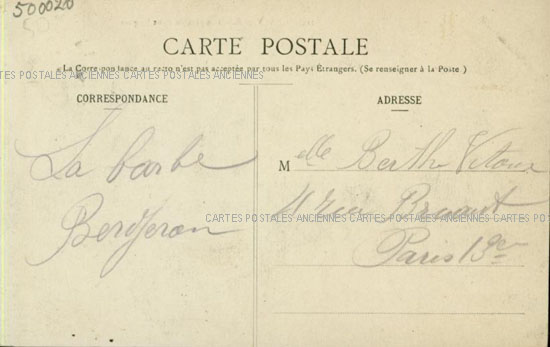 500020
CARTE POSTALE
La Correspondance au recto n'est pas acceptée par tous les Pays Étrangers. (Se renseigner à la Poste)
CARTES POSTALES ANCIENNES CARTES POSTALES ANCIENNES
CORRESPONDANCE
ADRESSE
La barbe
Melle Berthe
Bruant
CARTES POSTALES ANCIENNES CARTES POSTALES ANCIENNES CARTES POSTALES
Paris 13e